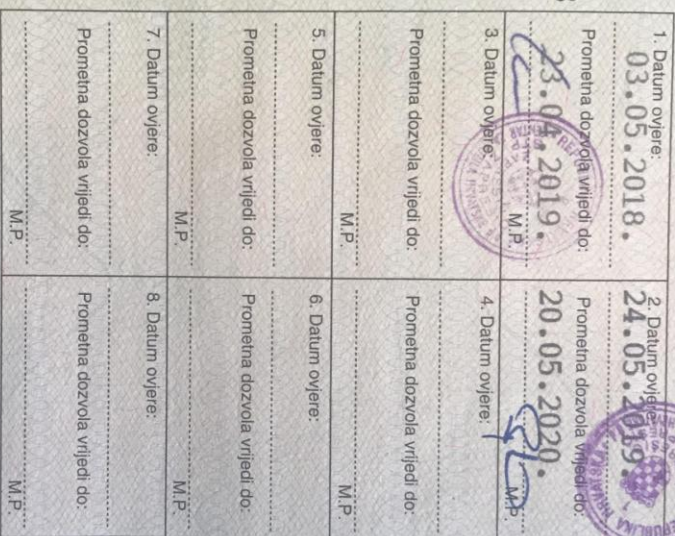 1. Datum ovjere:
03.05.2018.
Prometna dozvola vrijedi do:
23.04.2019.
M.P.
2. Datum ovjere:
24.05.2019.
Prometna dozvola vrijedi do:
20.05.2020.
M.P.
3. Datum ovjere:
Prometna dozvola vrijedi do:
M.P.
4. Datum ovjere:
Prometna dozvola vrijedi do:
M.P.
5. Datum ovjere:
Prometna dozvola vrijedi do:
M.P.
6. Datum ovjere:
Prometna dozvola vrijedi do:
M.P.
7. Datum ovjere:
Prometna dozvola vrijedi do:
M.P.
8. Datum ovjere:
Prometna dozvola vrijedi do:
M.P.